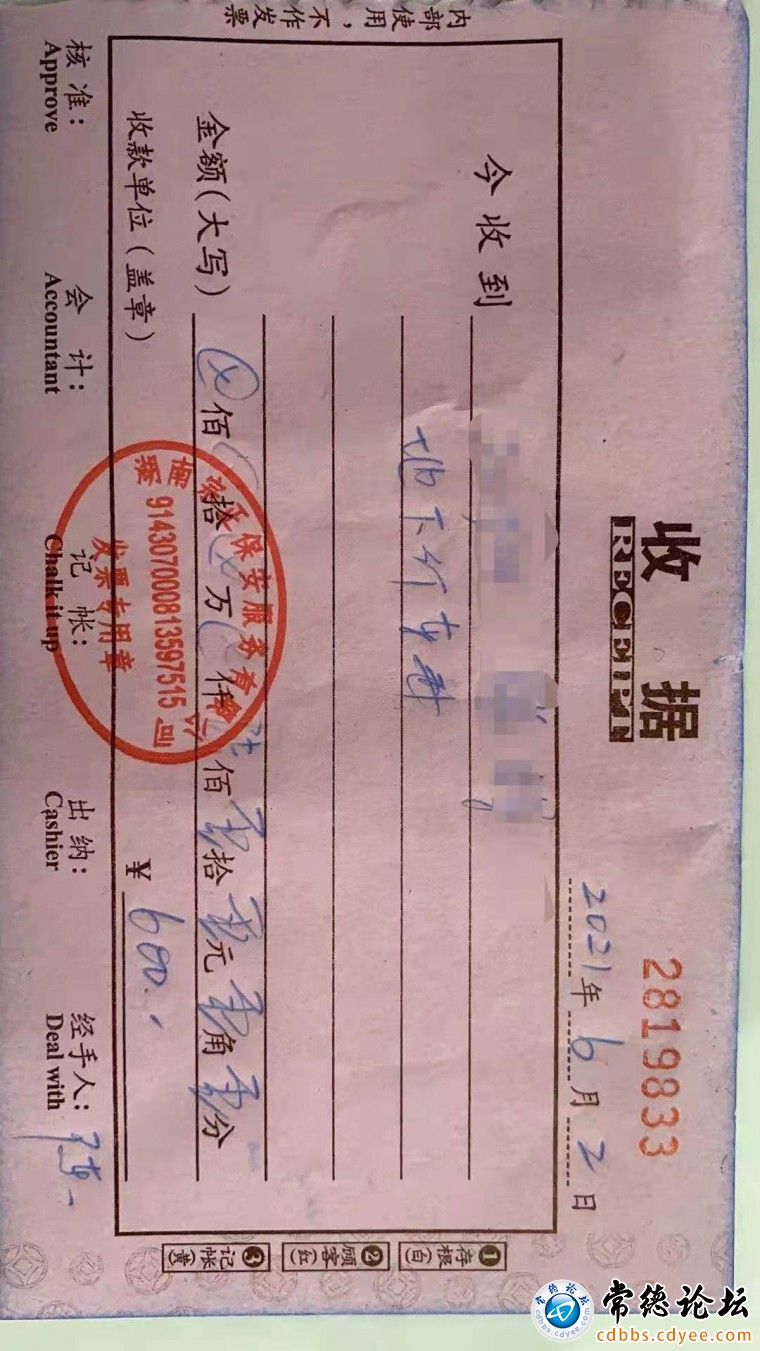 收 据
RECEIPT
2819833
2021年6月2日
今收到
地下停车费
金额(大写)
佰 拾 万 仟 陆佰零拾零元零角零分
收款单位(盖章)
¥ 600.
核 准:
Approve
会 计:
Accountant
记 帐:
Chalk it up
出 纳:
Cashier
经手人:
Deal with
内部使用,不作发票
❶存根(白)
❷顾客(红)
❸记帐(黄)
保安服务有限公司
914307000813597515
发票专用章
常德论坛
cdbbs.cdyee.com